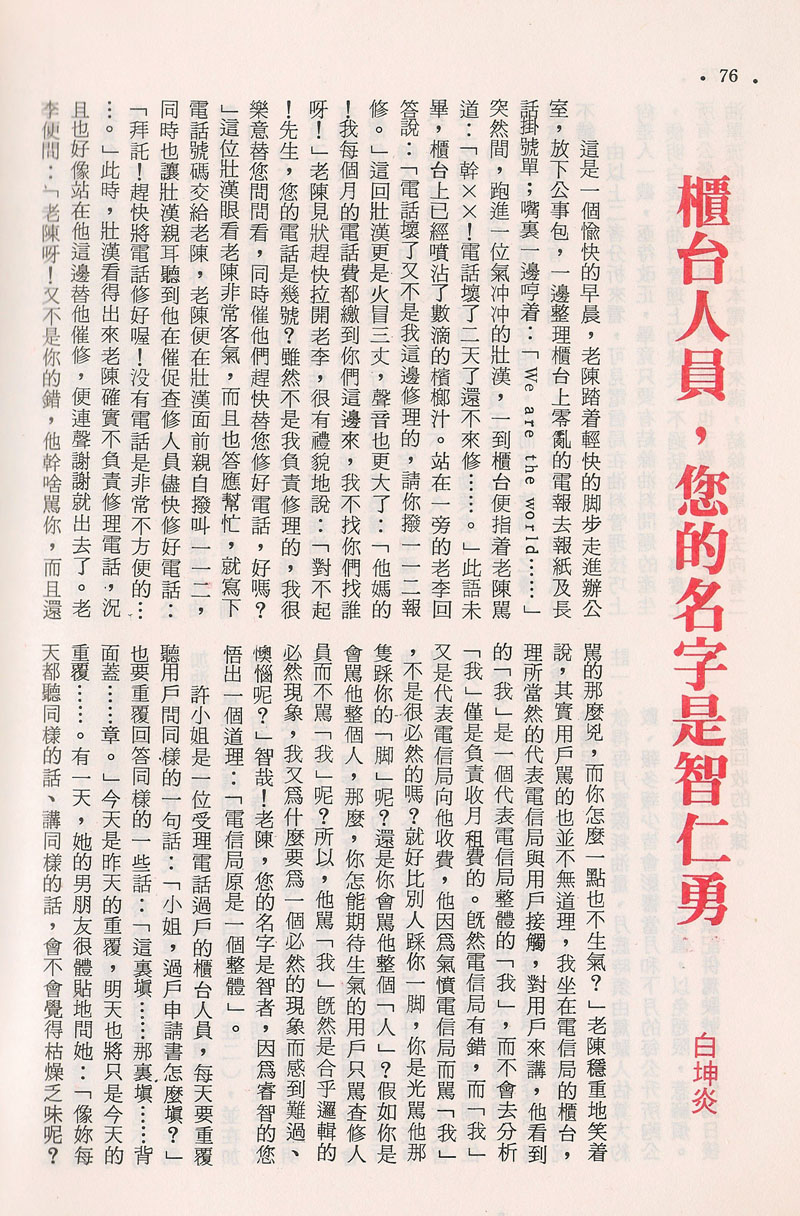 • 76 •
櫃台人員，您的名字是智仁勇
白坤炎
這是一個愉快的早晨，老陳踏着輕快的脚步走進辦公
室，放下公事包，一邊整理櫃台上零亂的電報去報紙及長
話掛號單；嘴裏一邊哼着：「We are the world……」
突然間，跑進一位氣冲冲的壯漢，一到櫃台便指着老陳駡
道：「幹××！電話壞了二天了還不來修……。」此語未
畢，櫃台上已經噴沾了數滴的檳榔汁。站在一旁的老李回
答說：「電話壞了又不是我這邊修理的，請你撥一一二報
修。」這回壯漢更是火冒三丈，聲音也更大了：「他媽的
！我每個月的電話費都繳到你們這邊來，我不找你們找誰
呀！」老陳見狀趕快拉開老李，很有禮貌地說：「對不起
！先生，您的電話是幾號？雖然不是我負責修理的，我很
樂意替您問問看，同時催他們趕快替您修好電話，好嗎？
」這位壯漢眼看老陳非常客氣，而且也答應幫忙，就寫下
電話號碼交給老陳，老陳便在壯漢面前親自撥叫一一二，
同時也讓壯漢親耳聽到他在催促查修人員儘快修好電話：
「拜託！趕快將電話修好喔！没有電話是非常不方便的…
…。」此時，壯漢看得出來老陳確實不負責修理電話，況
且也好像站在他這邊替他催修，便連聲謝謝就出去了。老
李便問：「老陳呀！又不是你的錯，他幹啥駡你，而且還
駡的那麼兇，而你怎麼一點也不生氣？」老陳穩重地笑着
說，其實用戶駡的也並不無道理，我坐在電信局的櫃台，
理所當然的代表電信局與用戶接觸，對用戶來講，他看到
的「我」是一個代表電信局整體的「我」，而不會去分析
「我」僅是負責收月租費的。旣然電信局有錯，而「我」
又是代表電信局向他收費，他因爲氣憤電信局而駡「我」
，不是很必然的嗎？就好比別人踩你一脚，你是光駡他那
隻踩你的「脚」呢？還是你會駡他整個「人」？假如你是
會駡他整個人，那麼，你怎能期待生氣的用戶只駡查修人
員而不駡「我」呢？所以，他駡「我」旣然是合乎邏輯的
必然現象，我又爲什麼要爲一個必然的現象而感到難過、
懊惱呢？」智哉！老陳，您的名字是智者，因爲睿智的您
悟出一個道理：「電信局原是一個整體」。
許小姐是一位受理電話過戶的櫃台人員，每天要重覆
聽用戶問同樣的一句話：「小姐，過戶申請書怎麼塡？」
也要重覆回答同樣的一些話：「這裏塡……那裏塡……背
面蓋……章。」今天是昨天的重覆，明天也將只是今天的
重覆……。有一天，她的男朋友很體貼地問她：「像妳每
天都聽同樣的話、講同樣的話，會不會覺得枯燥乏味呢？